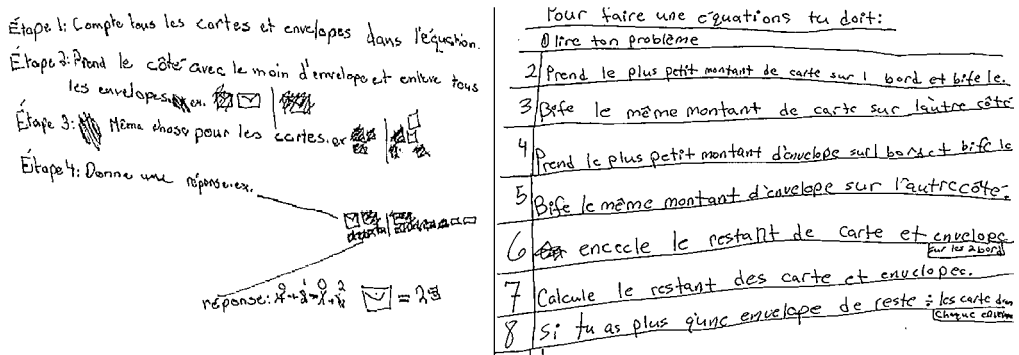 Étape 1: Compte tous les cartes et envelopes dans l'équation.
Étape 2: Prend le côté avec le moin d'envelope et enlève tous
les envelopes. ex.
Étape 3: Même chose pour les cartes. ex
Étape 4: Donne une réponse. ex.
réponse: = 2
Pour faire une équations tu doit:
1 lire ton problème
2 Prend le plus petit montant de carte sur 1 bord et bife le.
3 Bife le même montant de carte sur l'autre côté
4 Prend le plus petit montant d'envelope sur 1 bord et bife le
5 Bife le même montant d'envelope sur l'autre côté.
6 encecle le restant de carte et envelope
sur les 2 bord
7 Calcule le restant des carte et envelopes.
8 Si tu as plus qu'une envelope de reste ÷ les carte dans
chaque